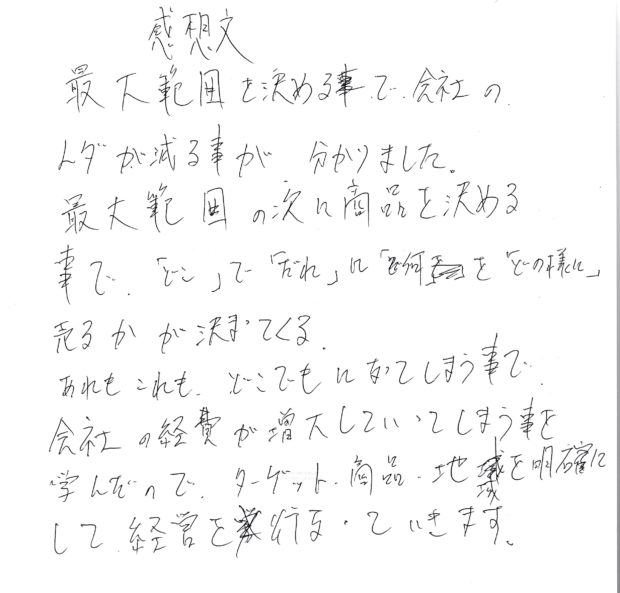 感想文
最大範囲を決める事で、会社の
ムダが減る事が 分かりました。
最大範囲の次に商品を決める
事で、「どこ」で「だれ」に「何」を「どの様に」
売るかが決まってくる。
あれもこれも、どこでもになってしまう事で、
会社の経費が増大していってしまう事を
学んだので、ターゲット・商品・地域を明確に
して経営を行なっていきます。